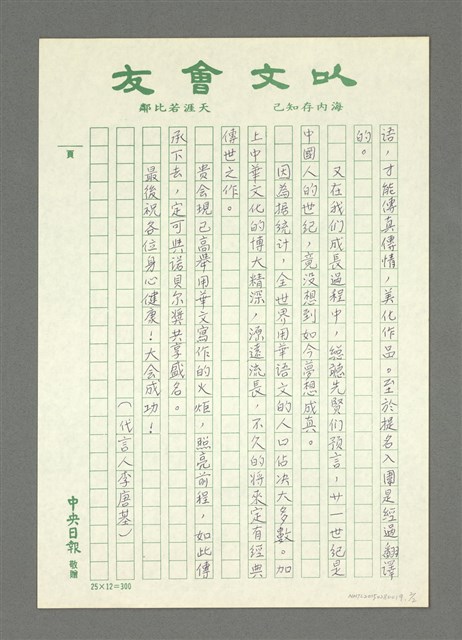 以文會友
海內存知己
天涯若比鄰
語，才能傳真傳情，美化作品。至於提名入圍是經過翻譯
的。
又在我们成長過程中，總聽先賢们預言，廿一世紀是
中國人的世紀，竟没想到如今夢想成真。
因為据統计，全世界用華語文的人口佔決大多數。加
上中華文化的博大精深，源遠流長，不久的將來定有經典
傳世之作。
貴会現已高舉用華文寫作的火炬，照亮前程，如此傳
承下去，定可與諾貝尔獎共享盛名。
最後祝各位身心健康！大会成功！
（代言人李唐基）
頁
中央日報 敬贈
25×12=300